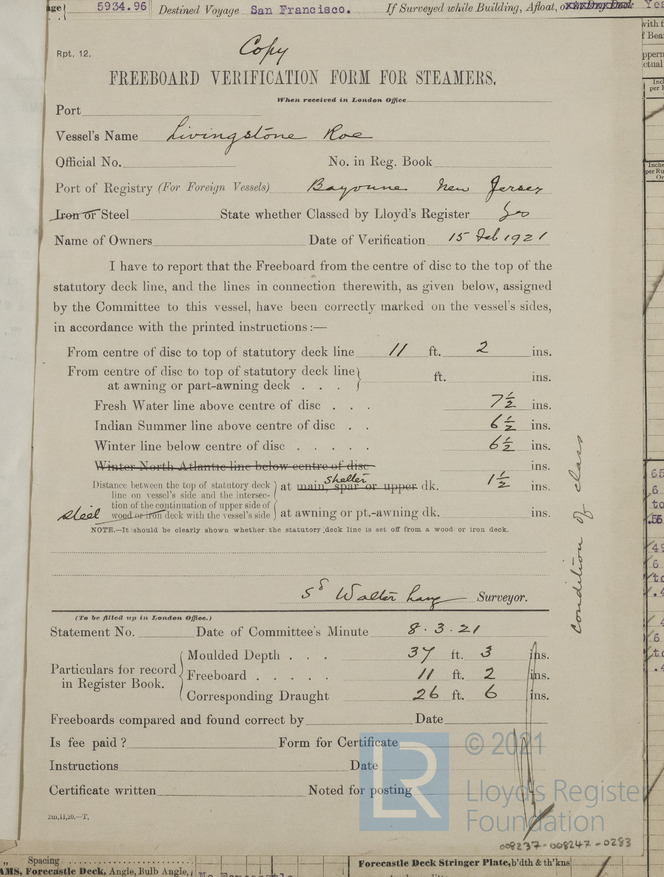 5934.96 Destined Voyage San Francisco. If Surveyed while Building, Afloat,
Rpt. 12.
Copy
FREEBOARD VERIFICATION FORM FOR STEAMERS.
When received in London Office
Port
Vessel's Name Livingstone Roe
Official No. No. in Reg. Book
Port of Registry (For Foreign Vessels) Bayonne New Jersey
Iron or Steel State whether Classed by Lloyd's Register Yes
Name of Owners Date of Verification 15 Feb 1921
I have to report that the Freeboard from the centre of disc to the top of the
statutory deck line, and the lines in connection therewith, as given below, assigned
by the Committee to this vessel, have been correctly marked on the vessel's sides,
in accordance with the printed instructions :—
From centre of disc to top of statutory deck line 11 ft. 2 ins.
From centre of disc to top of statutory deck line
at awning or part-awning deck . . . ft. ins.
Fresh Water line above centre of disc . . . 7½ ins.
Indian Summer line above centre of disc . . 6½ ins.
Winter line below centre of disc . . . . . 6½ ins.
Winter North Atlantic line below centre of disc ins.
Distance between the top of statutory deck
line on vessel's side and the intersec-
tion of the continuation of upper side of
steel wood or iron deck with the vessel's side
shelter
at main, spar or upper dk. 1½ ins.
at awning or pt.-awning dk. ins.
NOTE.—It should be clearly shown whether the statutory deck line is set off from a wood or iron deck.
condition of class
Sd Walter Lang Surveyor.
(To be filled up in London Office.)
Statement No. Date of Committee's Minute 8.3.21
Particulars for record
in Register Book.
Moulded Depth . . . 37 ft. 3 ins.
Freeboard . . . . . 11 ft. 2 ins.
Corresponding Draught 26 ft. 6 ins.
Freeboards compared and found correct by Date
Is fee paid ? Form for Certificate
Instructions Date
Certificate written Noted for posting
2m,11,20.—T.
LR © 2021
Lloyd's Register
Foundation
008237-008247-0283
„ Spacing
AMS, Forecastle Deck, Angle, Bulb Angle,
Forecastle Deck Stringer Plate, b'dth & th'kns